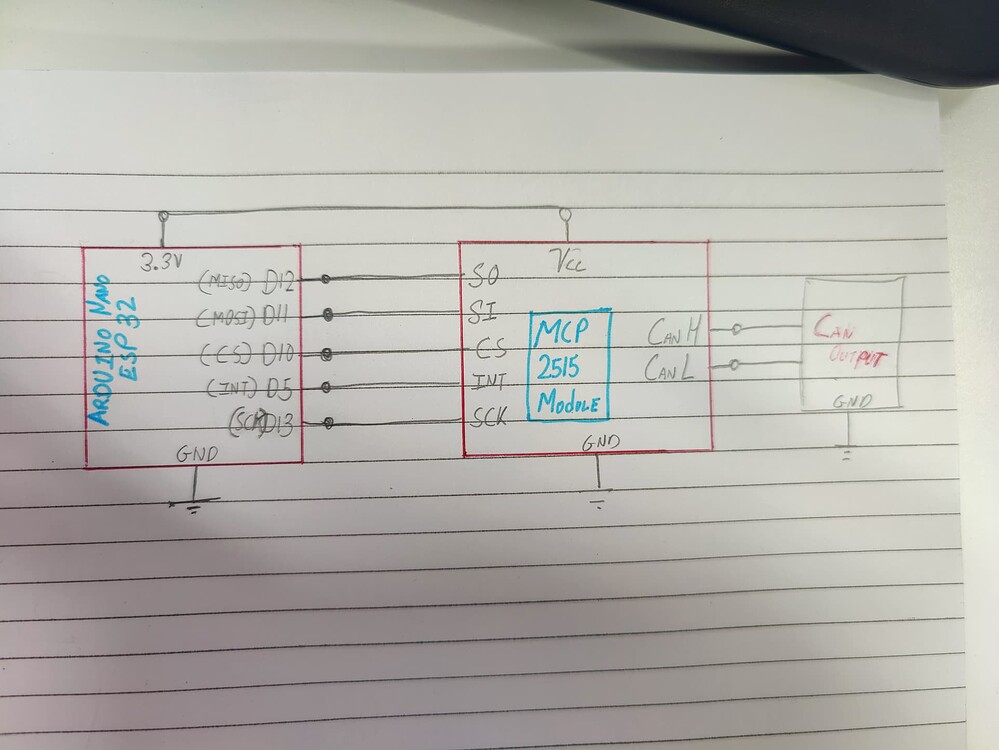 ARDUINO NANO
ESP 32
3.3V
(MISO) D12
(MOSI) D11
(CS) D10
(INT) D5
(SCK) D13
GND
Vcc
SO
SI
CS
INT
SCK
MCP
2515
MODULE
CAN H
CAN L
GND
CAN
OUTPUT
GND